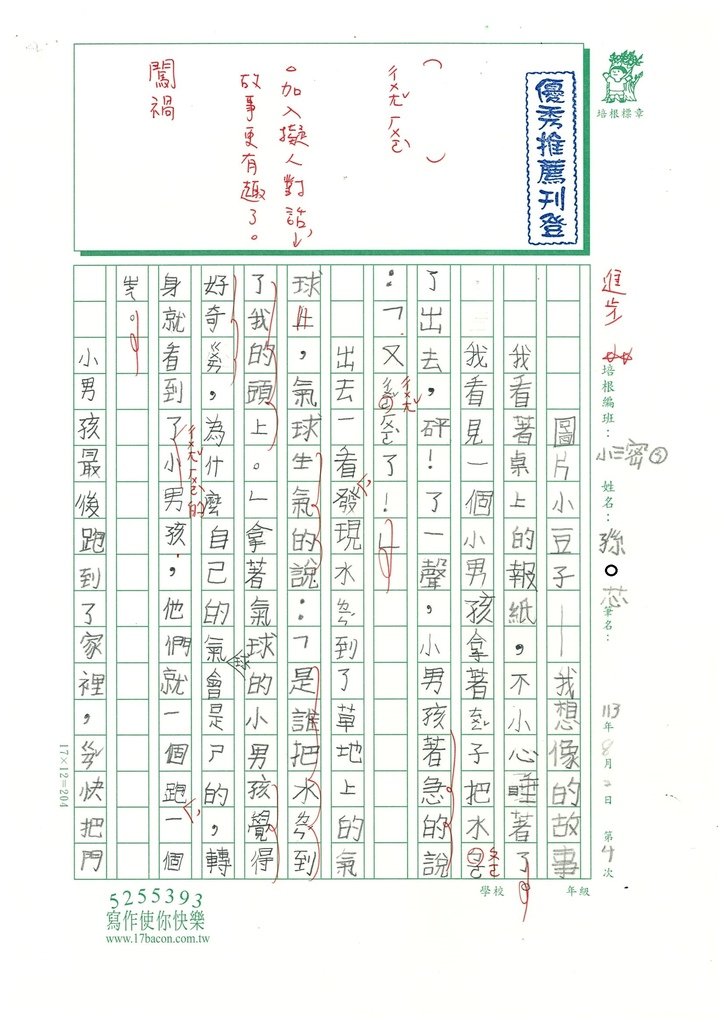 培根標章
優秀推薦刊登
( ㄔㄨㄤˇ ㄏㄨㄛˋ )
。加入擬人對話,
故事更有趣了。
闖禍
進步
培根編班：小三密③ 姓名：孫○芯 筆名： 113年8月2日 第4次
學校 年級
圖片小豆子——我想像的故事
我看著桌上的報紙，不小心睡著了
我看見一個小男孩拿著ㄓㄨ子把水
了出去，砰！了一聲，小男孩著急的說
：「又ㄔㄨㄤˇㄏㄨㄛˋ了！」
出去一看發現水ㄆㄛ到了草地上的氣
球上，氣球生氣的說：「是誰把水ㄆㄛ到
了我的頭上。」拿著氣球的小男孩覺得
好奇ㄍㄨㄞˋ，為什麼自己的氣球會是ㄕ的，轉
身就看到了ㄔㄨㄤˇㄏㄨㄛˋ的小男孩，他們就一個跑一個
。
小男孩最後跑到了家裡，ㄍㄢˇ快把門
17×12=204
5255393
寫作使你快樂
www.17bacon.com.tw